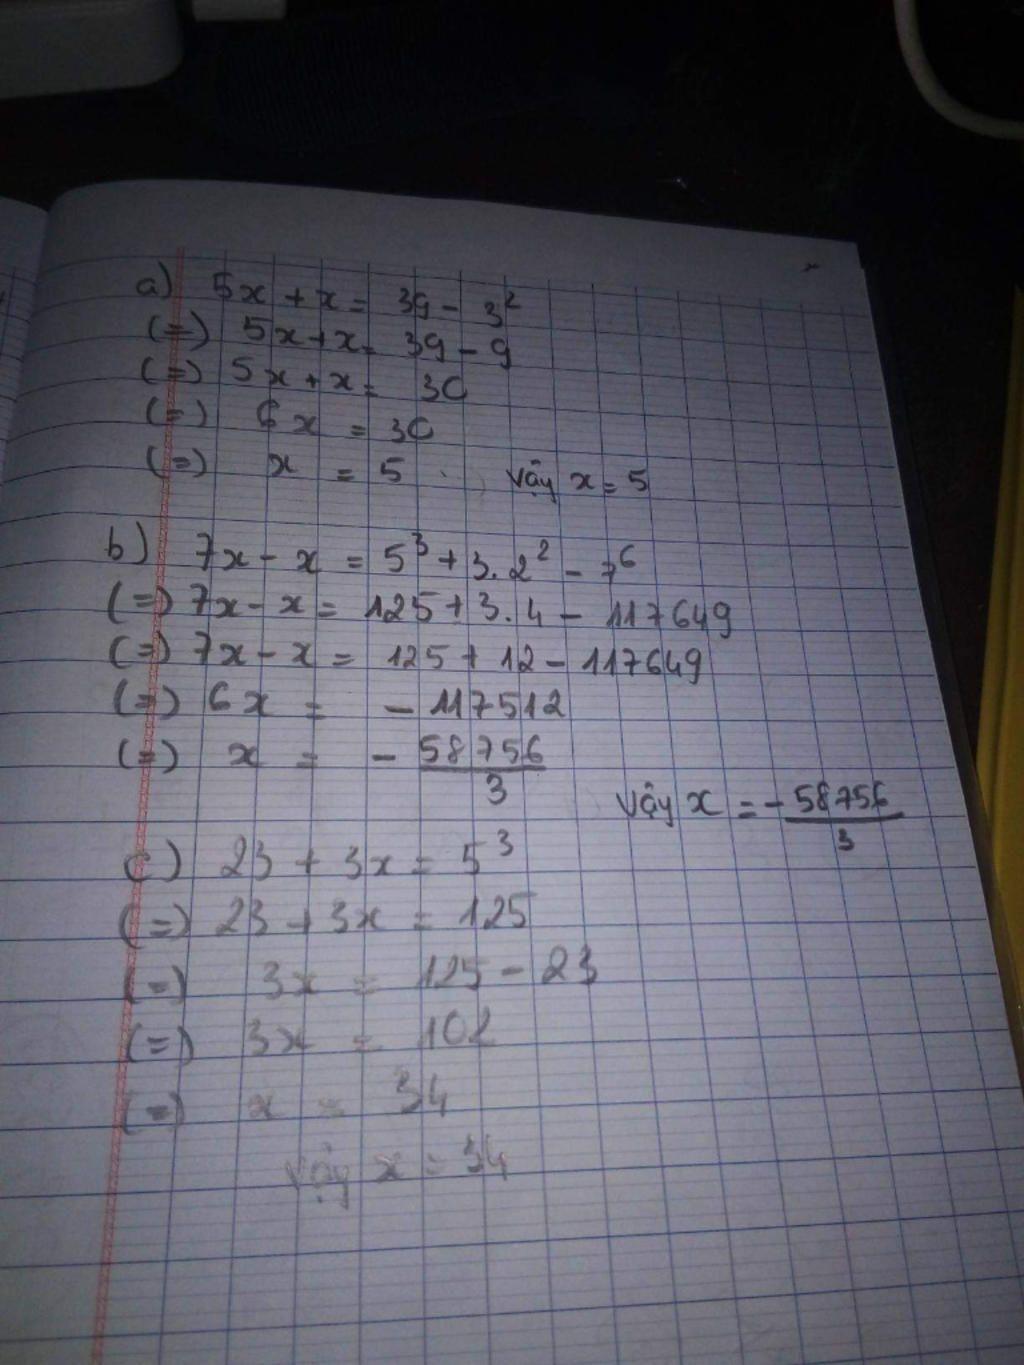 a) 5x + x = 39 - 3²
(=) 5x + x = 39 - 9
(=) 5x + x = 30
(=) 6x = 30
(=) x = 5 Vậy x = 5
b) 7x - x = 5³ + 3.2² - 7⁶
(=) 7x - x = 125 + 3.4 - 117649
(=) 7x - x = 125 + 12 - 117649
(=) 6x = - 117512
(=) x = - 58756/3
Vậy x = - 58756/3
c) 23 + 3x = 5³
(=) 23 + 3x = 125
(=) 3x = 125 - 23
(=) 3x = 102
(=) x = 34
Vậy x = 34